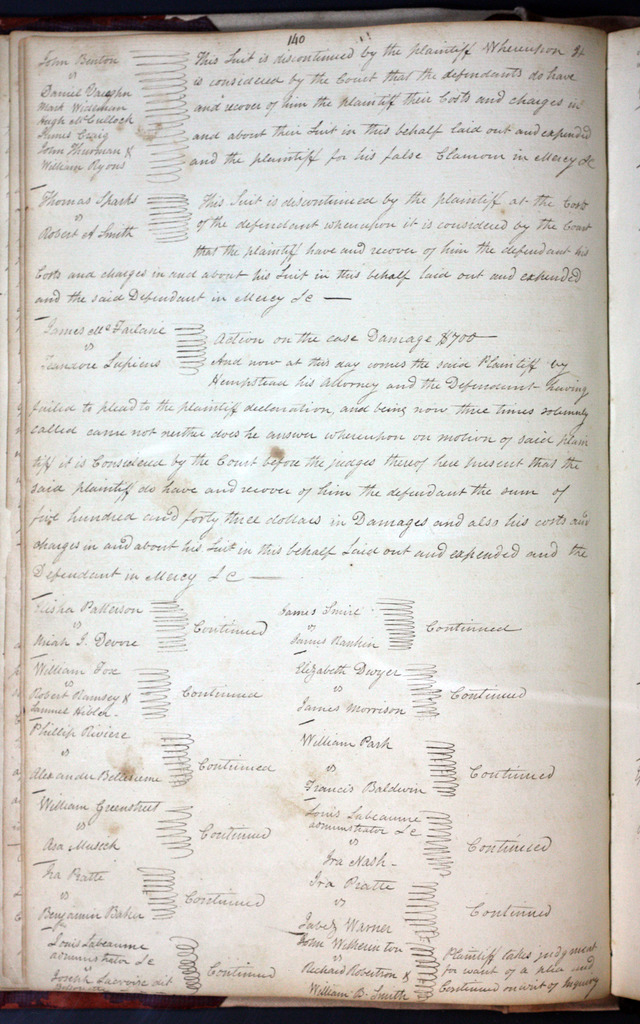 140
John Benton
vs
Daniel Vaughn
Mark Wideman
Hugh McCullock
James Craig
John Thurman &
William Ryons
This Suit is discontinued by the plaintiff Whereupon It
is considered by the Court that the defendants do have
and recover of him the plaintiff their Costs and charges in
and about their Suit in this behalf laid out and expended
and the plaintiff for his false Clamour in Mercy &c
Thomas Sparks
vs
Robert A Smith
This Suit is discontinued by the plaintiff at the Cost
of the defendant whereupon it is considered by the Court
that the plaintiff have and recover of him the defendant his
Costs and charges in and about his Suit in this behalf laid out and expended
and the said Defendant in Mercy &c —
James McFarlane
vs
Lupiens
Action on the case Damage $700—
And now at this day comes the said Plaintiff by
Hempstead his Attorney and the Defendant having
failed to plead to the plaintiff declaration, and being now three times solemnly
called came not neither does he answer whereupon on motion of said plain
tiff it is Considered by the Court before the judges thereof here present that the
said plaintiff do have and recover of him the defendant the sum of
five hundred and forty three dollars in Damages and also his costs and
charges in and about his Suit in this behalf Laid out and expended and the
Defendant in Mercy &c —
Elisha Patterson
vs
Uriah J. Devore
Continued
William Fox
vs
Robert Ramsey &
Samuel Hibler
Continued
Phillip Riviere
vs
Alexander Bellesieme
Continued
William Greenstreet
vs
Asa Musick
Continued
Ira Piatte
vs
Benjamin Baker
Continued
Louis Labeaume
administrator &c
vs
Lacroix dit
Continued
James Smirl
vs
James Rankin
Continued
Elizabeth Dwyer
vs
James Morrison
Continued
William Park
vs
Francis Baldwin
Continued
Louis Labeaume
administrator &c
vs
Ira Nash -
Continued
Ira Piatte
vs
Jabez Warner
Continued
John Witherinton
vs
Richard Robertson &
William B. Smith
Plaintiff takes judgment
for want of a plea and
Continued on writ of Inquiry